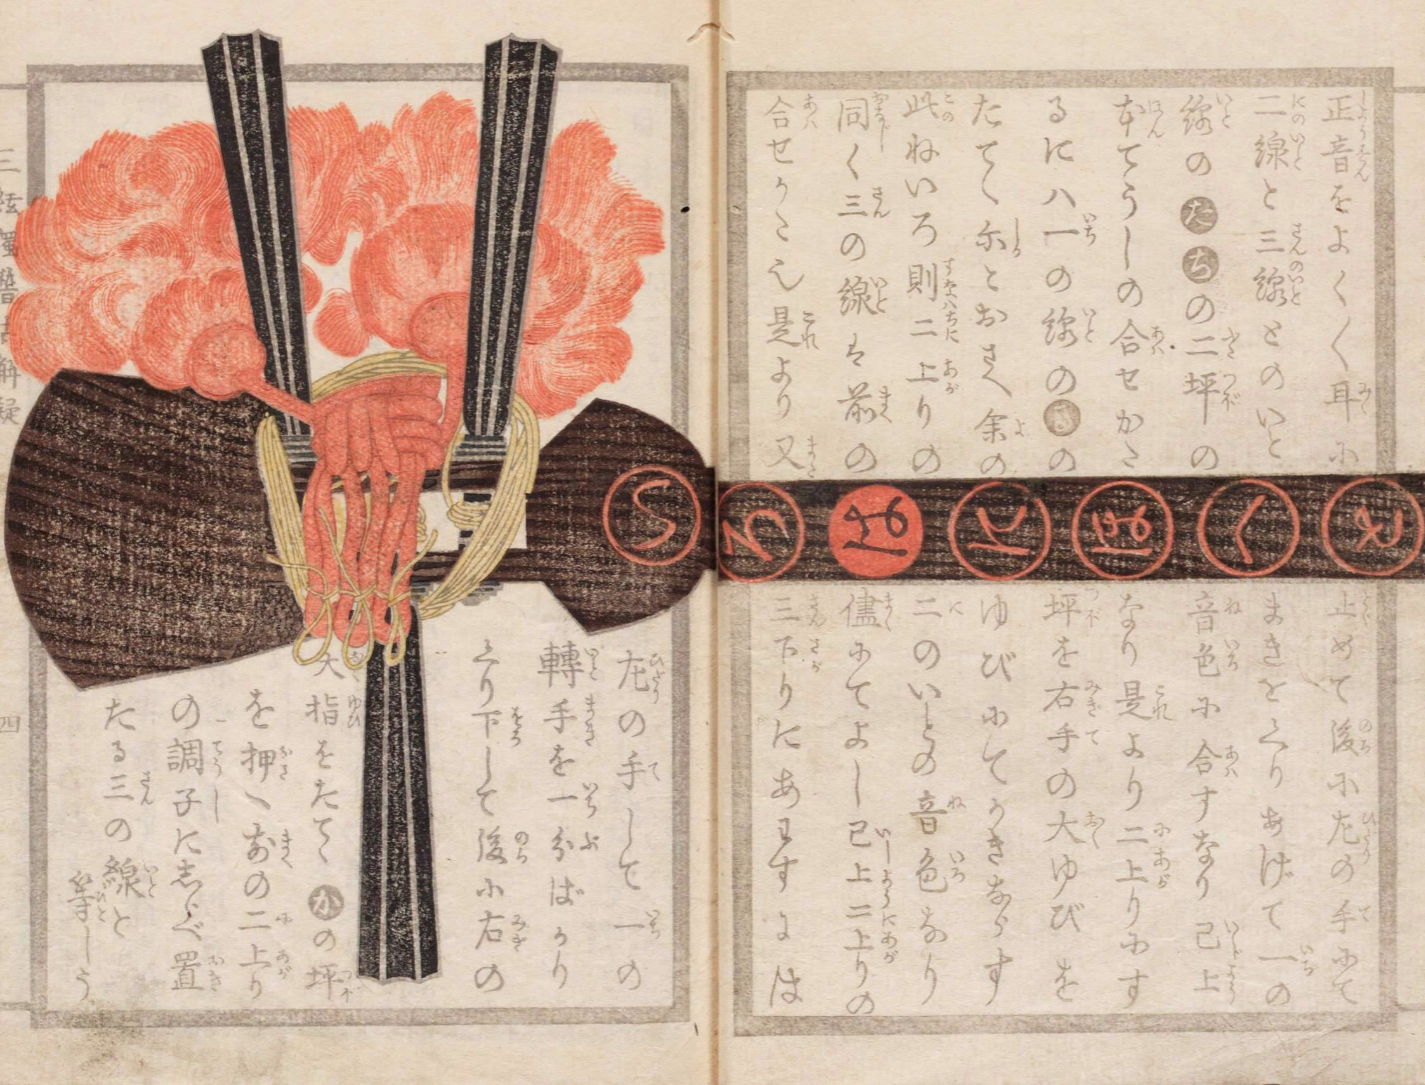 正音をよく〱耳に止めて後に左の手にて
二線と三線とのいとまきをくりあげて一の
線のたちの二坪の音色に合すなり已上
本てうしの合せかたなり是より二上りにす
るにハ一の線のうの坪を右手の大ゆびを
たてて尓とおさへ余のゆびにてかきならす
此ねいろ則二上りの二のいとの音色なり
同く三の線は前の儘にてよし已上二上りの
合せかた也是より又三下りにあはすには
いろはにほへと
左の手して一の
轉手を一分ばかり
くり下して後に右の
大指をたてかの坪
を押へ前の二上り
の調子に志らべ置
たる三の線と
等しう
四